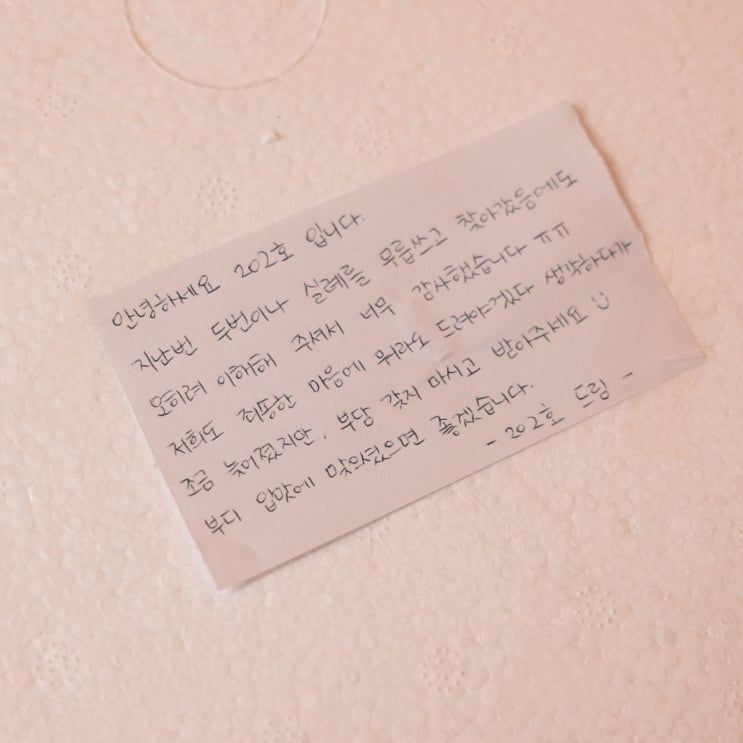 안녕하세요 202호 입니다.
지난번 두번이나 실례를 무릅쓰고 찾아갔음에도
오히려 이해해 주셔서 너무 감사했습니다 ㅠㅠ
저희도 죄송한 마음에 뭐라도 드려야겠다 생각하다가
조금 늦어졌지만, 부담 갖지 마시고 받아주세요 :)
부디 입맛에 맞으셨으면 좋겠습니다.
- 202호 드림 -